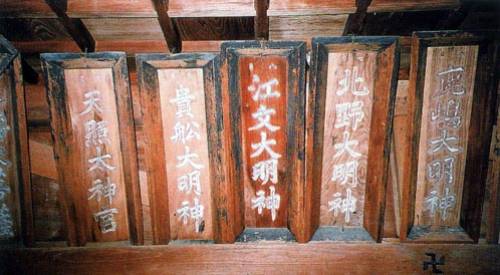 鹿嶋大明神
北野大明神
江文大明神
貴舩大明神
天照大神宮
卍